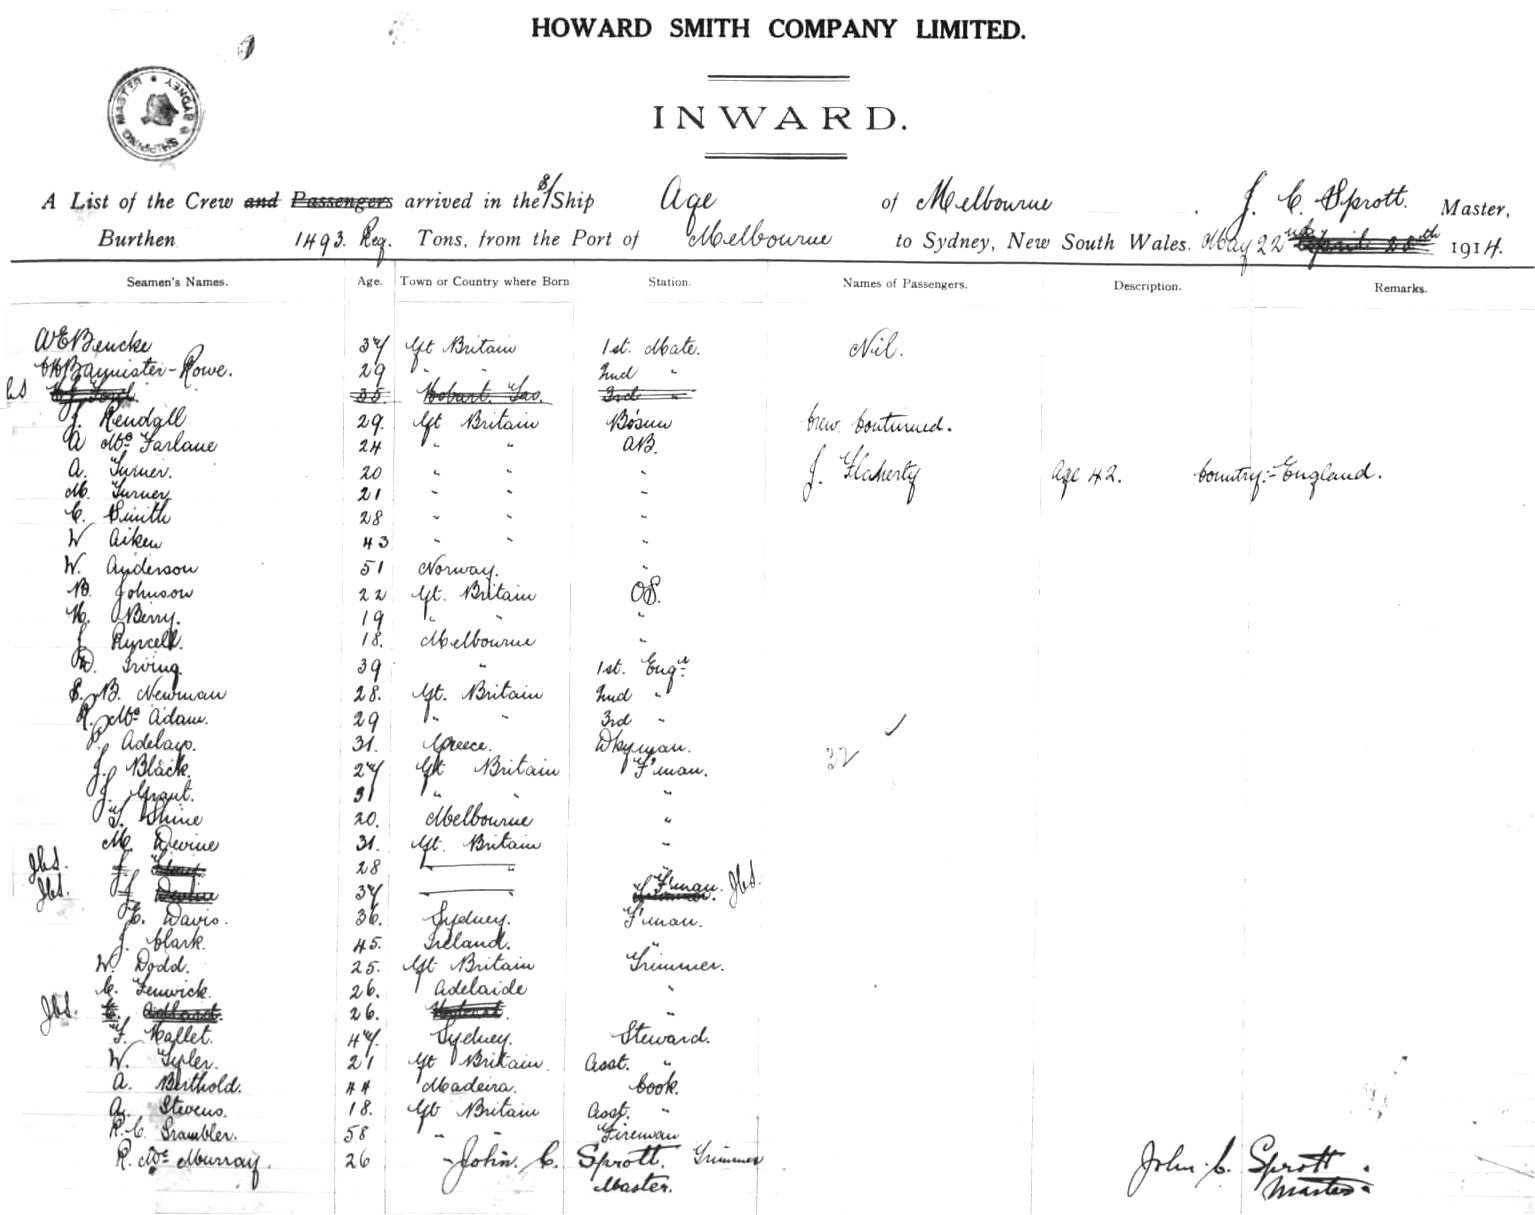 HOWARD SMITH COMPANY LIMITED.
SHIPPING MASTER SYDNEY
INWARD.
A List of the Crew and Passengers arrived in the S/Ship Age of Melbourne J. C. Sprott. Master,
Burthen 1493 Reg. Tons, from the Port of Melbourne to Sydney, New South Wales. May 22nd April 28th 1914.
Seamen's Names. Age. Town or Country where Born Station. Names of Passengers. Description. Remarks.
W E Bencke 37 Gt Britain 1st. Mate. Nil.
Bannister-Rowe. 29 " " 2nd "
Ford 35 Hobart. Tas. 3rd "
J. Kendall 29. Gt Britain Bosun Crew Continued.
A McFarlane 24 " " AB.
A. Turner. 20 " " " J. Flaherty Age 42. Country:- England.
M. Turner 21 " " "
C. Smith 28 " " "
W Aiken 43 " " "
W. Anderson 51 Norway. "
B. Johnson 22 Gt. Britain OS.
H. Berry. 19 " " "
J. 18. Melbourne "
D. Irving 39 " 1st. Engr
S. B. Newman 28. Gt. Britain 2nd "
R. McAdam. 29 " " 3rd "
P. 31. Greece. Dkyman.
J. Black. 27 Gt Britain F'man. 32
J. Grant. 31 " " "
T. Shine 20. Melbourne "
M. Devine 31. Gt. Britain "
JCS. J. 28 " "
JCS. J. Devlin 37 F'man. JCS
C. Davis. 36. Sydney. F'man.
J. Clark. 45. Ireland. "
W. Dodd. 25. Gt Britain Trimmer.
C. Fenwick. 26. Adelaide "
JCS. 26. "
F. Hallet. 47. Sydney. Steward.
W. Tyler. 21 Gt Britain. Asst. "
A. Berthold. 44 Madeira. Cook.
A. Stevens. 18. Gt Britain Asst. "
R. C. Grambler. 58 " " Fireman
R. McMurray. 26 " John. C. Sprott. Trimmer John. C. Sprott.
Master. Master.